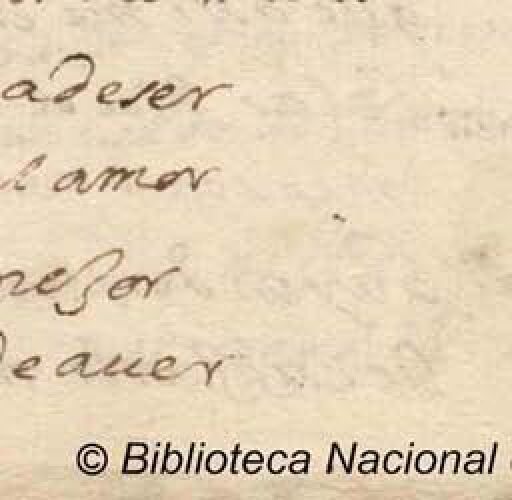 adeser
l amor
mejor
deauer
© Biblioteca Nacional